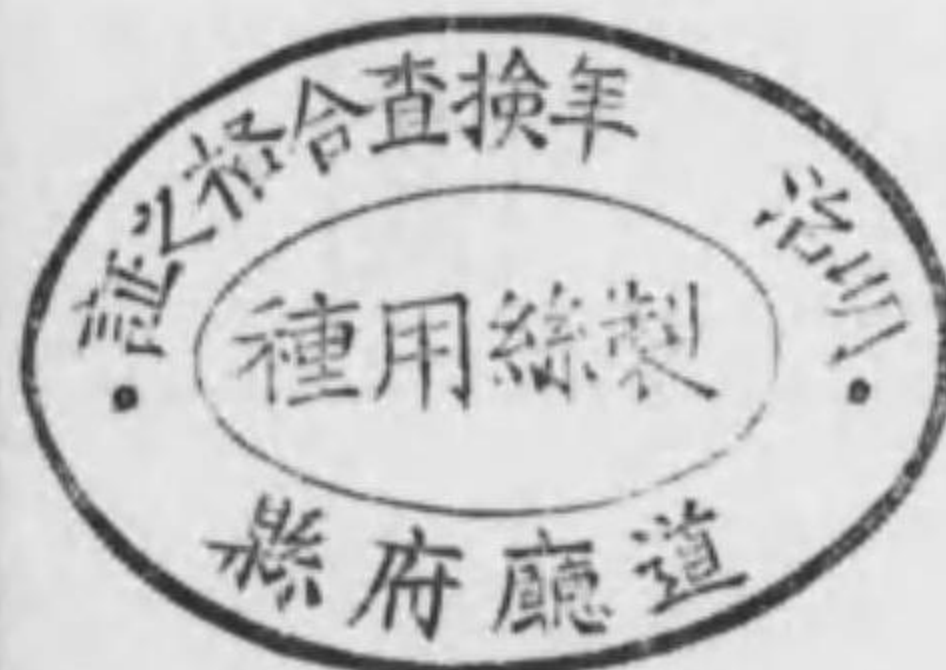 明治　　年検査合格之証
製絲用種
道廳府縣